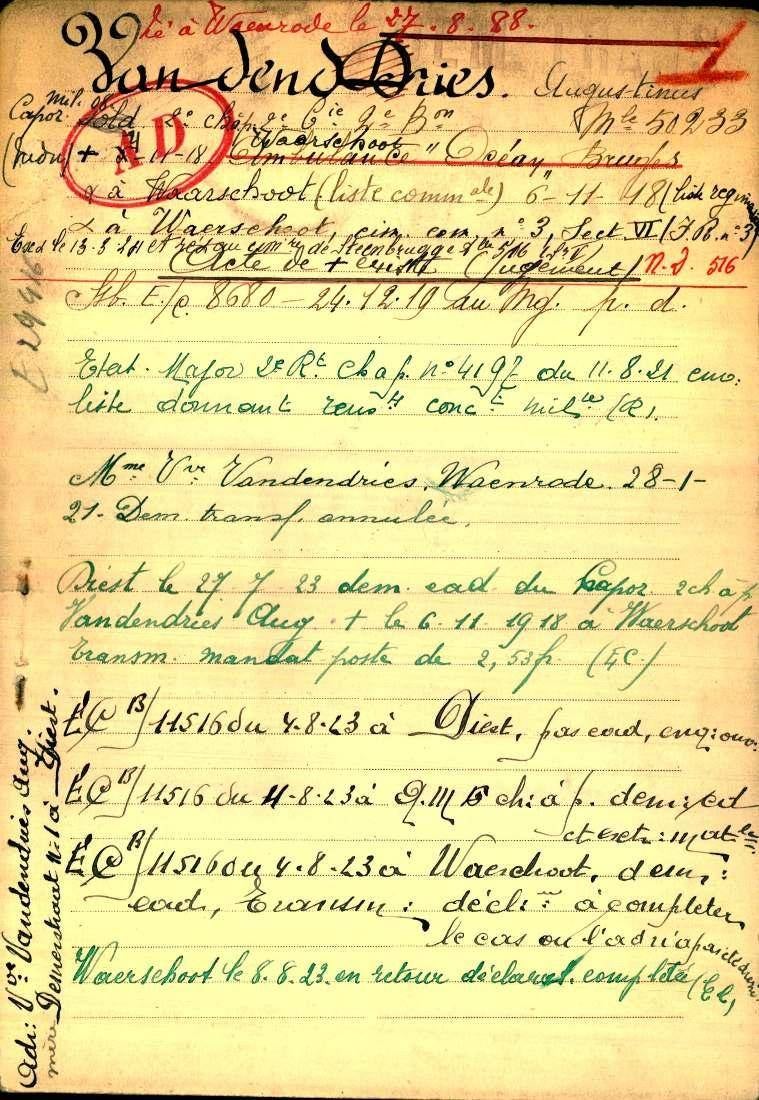 Né à Waenrode le 27.8.88.
Van den Dries. Augustinus
Capor. mil. 08 Sold 2e chàp. 2e Cie 2e Bon Mle 50233
+ 4-11-18 Waerschoot Ambulance "Océan" Bruges
AD
à Waarschoot (liste commale) 6-11-18
à Waerschoot, cim. com. no 3, Sect VI
Steenbrugge
Acte de + (Jugement) N.D. 516
E. 8680 – 24.12.19 au Mg. p. d.
Etat-Major 2e Rt Ch à p. no 4197 du 11.8.21 env:
liste donnant renste conct milre (R).
Mme Vve Vandendries, Waenrode. 28-1-
21. Dem. transf. annulée.
Diest le 27 7 23 dem. ead. du Capor 2ch à p
Vandendries Aug + le 6.11.1918 à Waerschoot
transm. mandat poste de 2,53f. (EC)
EC B/11516 du 4-8-23 à Diest, pas ead, enq: ouv:
EC B/11516 du 4-8-23 à Q.M 5 ch: à p. dem: ead
et extr: matle
EC B/11516 du 4-8-23 à Waerschoot, dem:
ead, Transm: décl: à completer
le cas ou l'ad
Waerschoot le 8.8.23. en retour déclarat. completée (EC)
Adr: Vve Vandendries Aug.
mère Demerstraat no 1 à Diest.